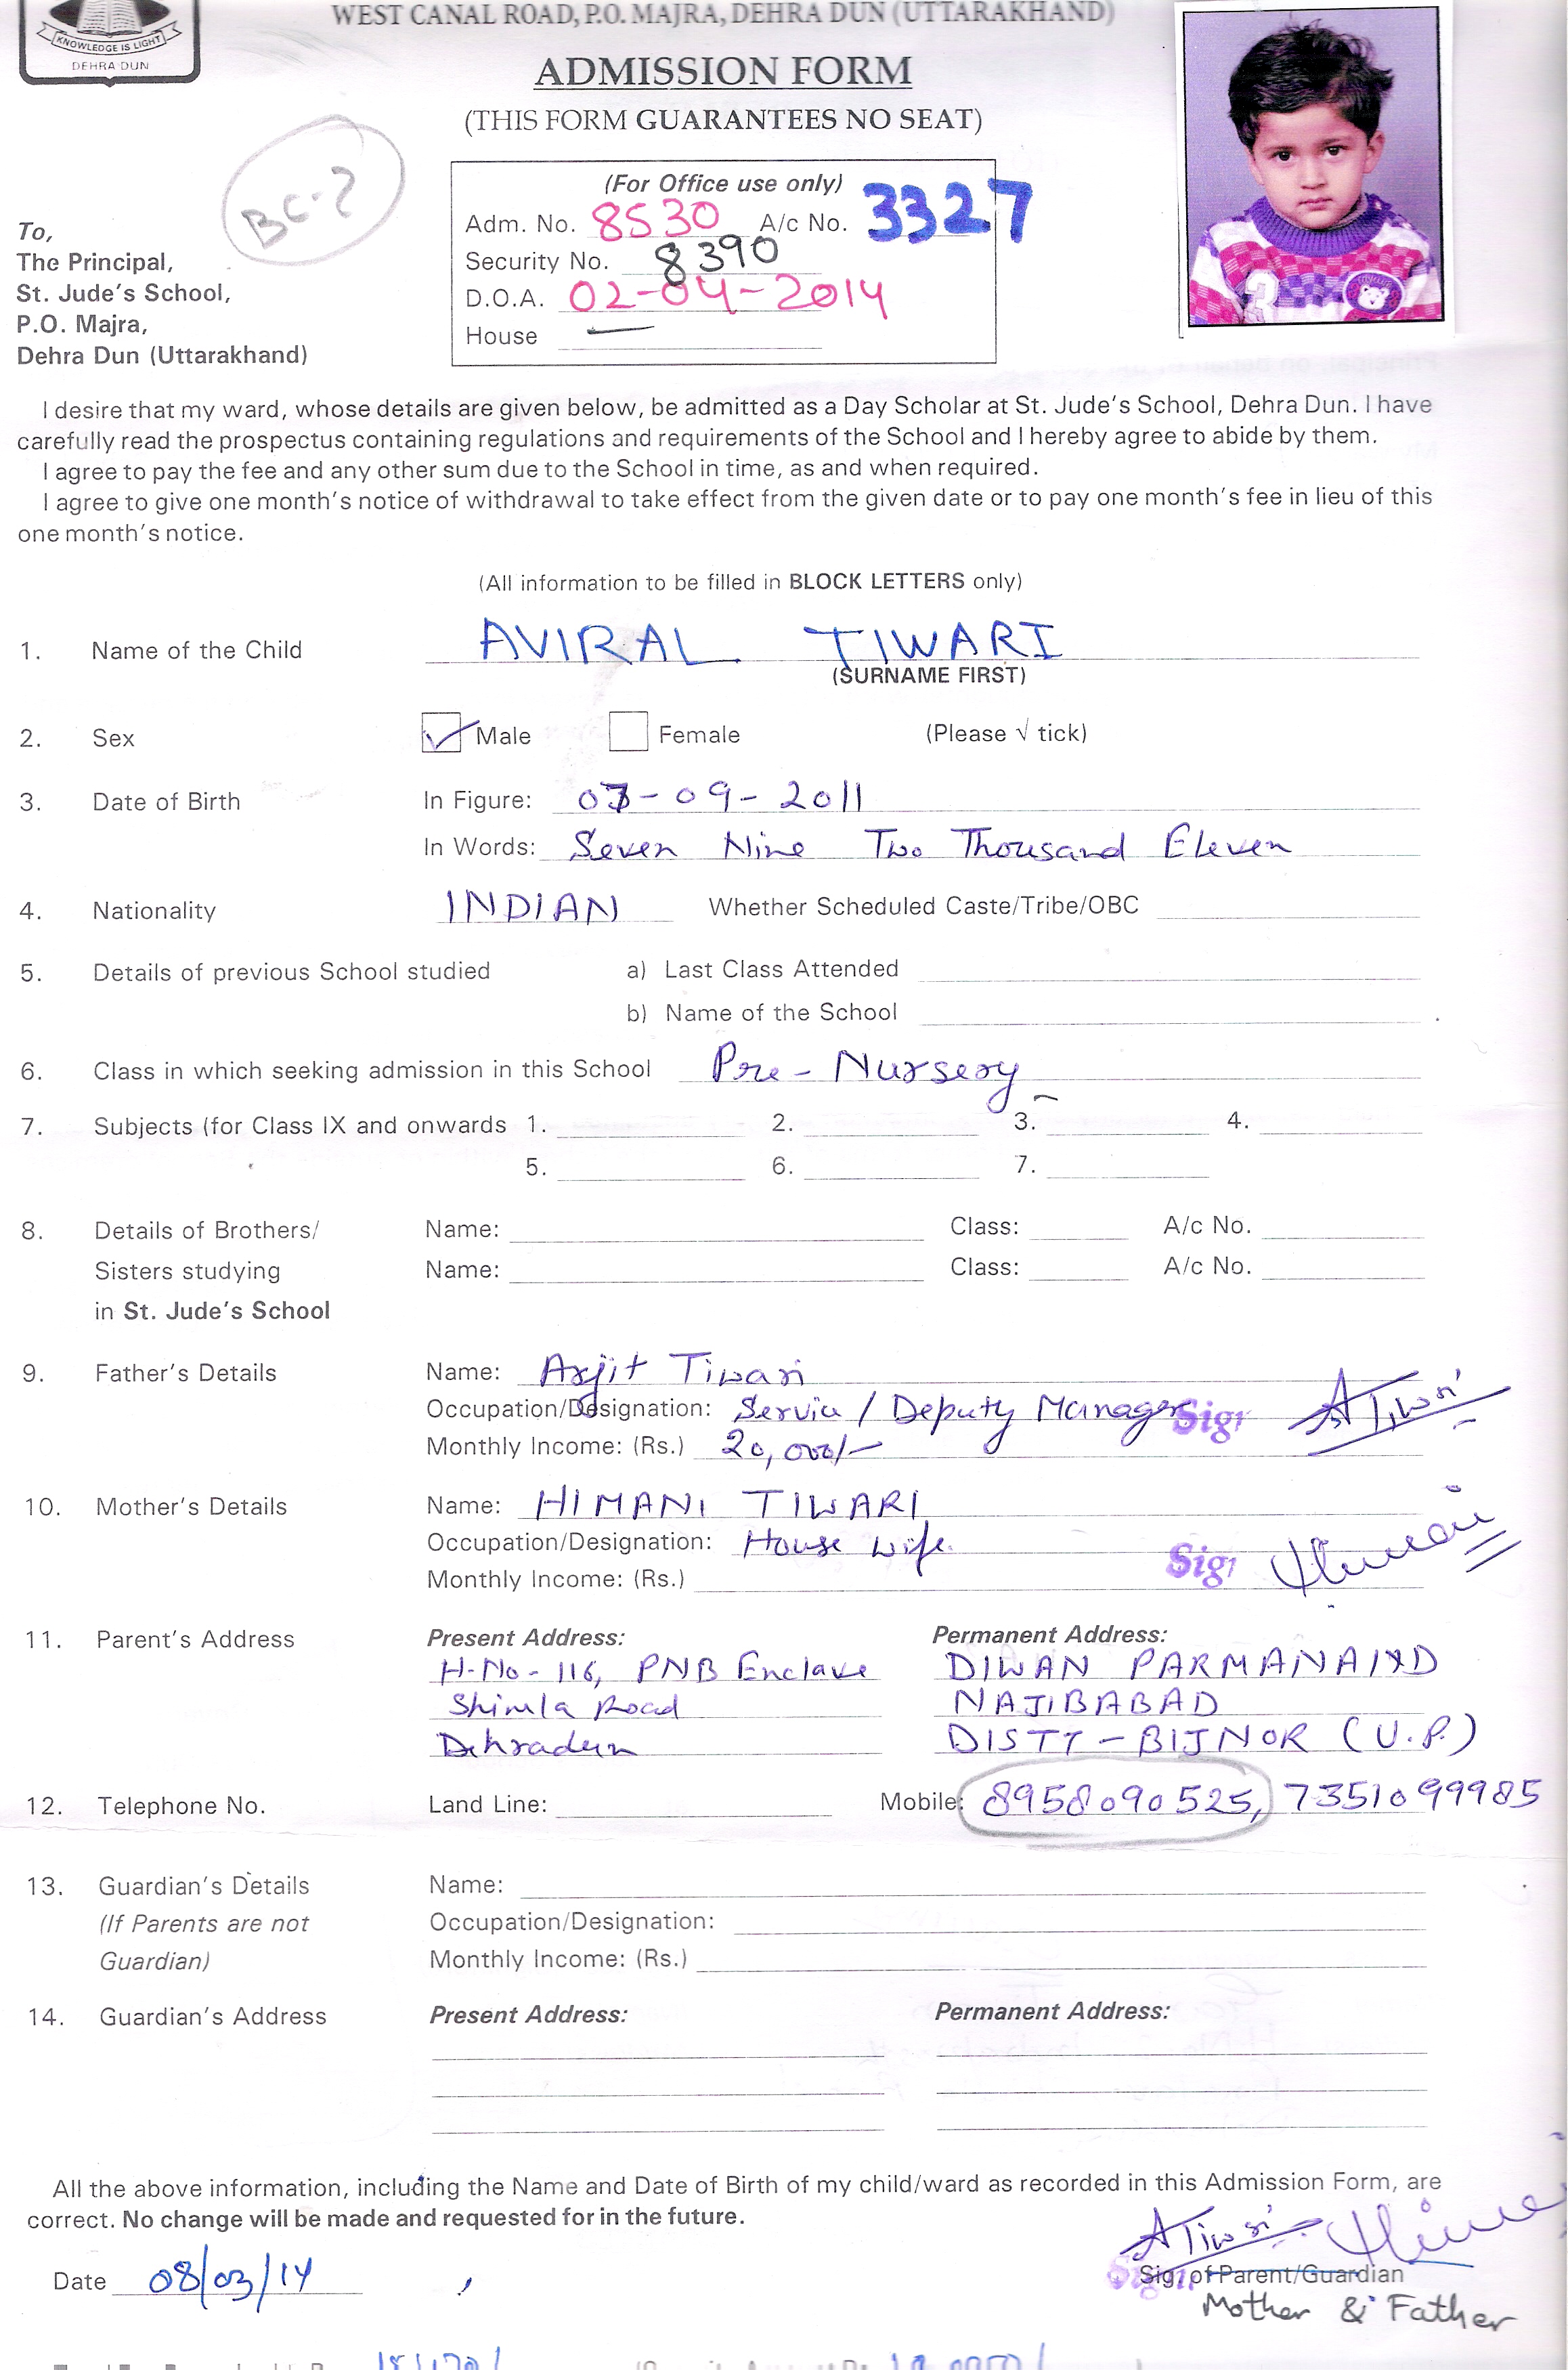 WEST CANAL ROAD, P.O. MAJRA, DEHRA DUN (UTTARAKHAND)
KNOWLEDGE IS LIGHT
DEHRA DUN
ADMISSION FORM
(THIS FORM GUARANTEES NO SEAT)
BC-?
(For Office use only)
Adm. No. 8530 A/c No. 3327
Security No. 8390
D.O.A. 02-04-2014
House —
To,
The Principal,
St. Jude's School,
P.O. Majra,
Dehra Dun (Uttarakhand)
I desire that my ward, whose details are given below, be admitted as a Day Scholar at St. Jude's School, Dehra Dun. I have
carefully read the prospectus containing regulations and requirements of the School and I hereby agree to abide by them.
I agree to pay the fee and any other sum due to the School in time, as and when required.
I agree to give one month's notice of withdrawal to take effect from the given date or to pay one month's fee in lieu of this
one month's notice.
(All information to be filled in BLOCK LETTERS only)
1. Name of the Child AVIRAL TIWARI
(SURNAME FIRST)
2. Sex ✓ Male Female (Please √ tick)
3. Date of Birth In Figure: 07-09-2011
In Words: Seven Nine Two Thousand Eleven
4. Nationality INDIAN Whether Scheduled Caste/Tribe/OBC
5. Details of previous School studied a) Last Class Attended
b) Name of the School
6. Class in which seeking admission in this School Pre-Nursery
7. Subjects (for Class IX and onwards 1. 2. 3. 4.
5. 6. 7.
8. Details of Brothers/ Name: Class: A/c No.
Sisters studying Name: Class: A/c No.
in St. Jude's School
9. Father's Details Name: Arjit Tiwari
Occupation/Designation: Service / Deputy Manager Sig ATiwri
Monthly Income: (Rs.) 20,000/-
10. Mother's Details Name: HIMANI TIWARI
Occupation/Designation: House wife Sig
Monthly Income: (Rs.)
11. Parent's Address Present Address: Permanent Address:
H-No-116, PNB Enclave DIWAN PARMANAND
Shimla Road NAJIBABAD
Dehradun DISTT-BIJNOR (U.P.)
12. Telephone No. Land Line: Mobile: 8958090525, 7351099985
13. Guardian's Details Name:
(If Parents are not Occupation/Designation:
Guardian) Monthly Income: (Rs.)
14. Guardian's Address Present Address: Permanent Address:
All the above information, including the Name and Date of Birth of my child/ward as recorded in this Admission Form, are
correct. No change will be made and requested for in the future.
ATiwri
Date 08/03/14 Sig. of Parent/Guardian
Mother & Father